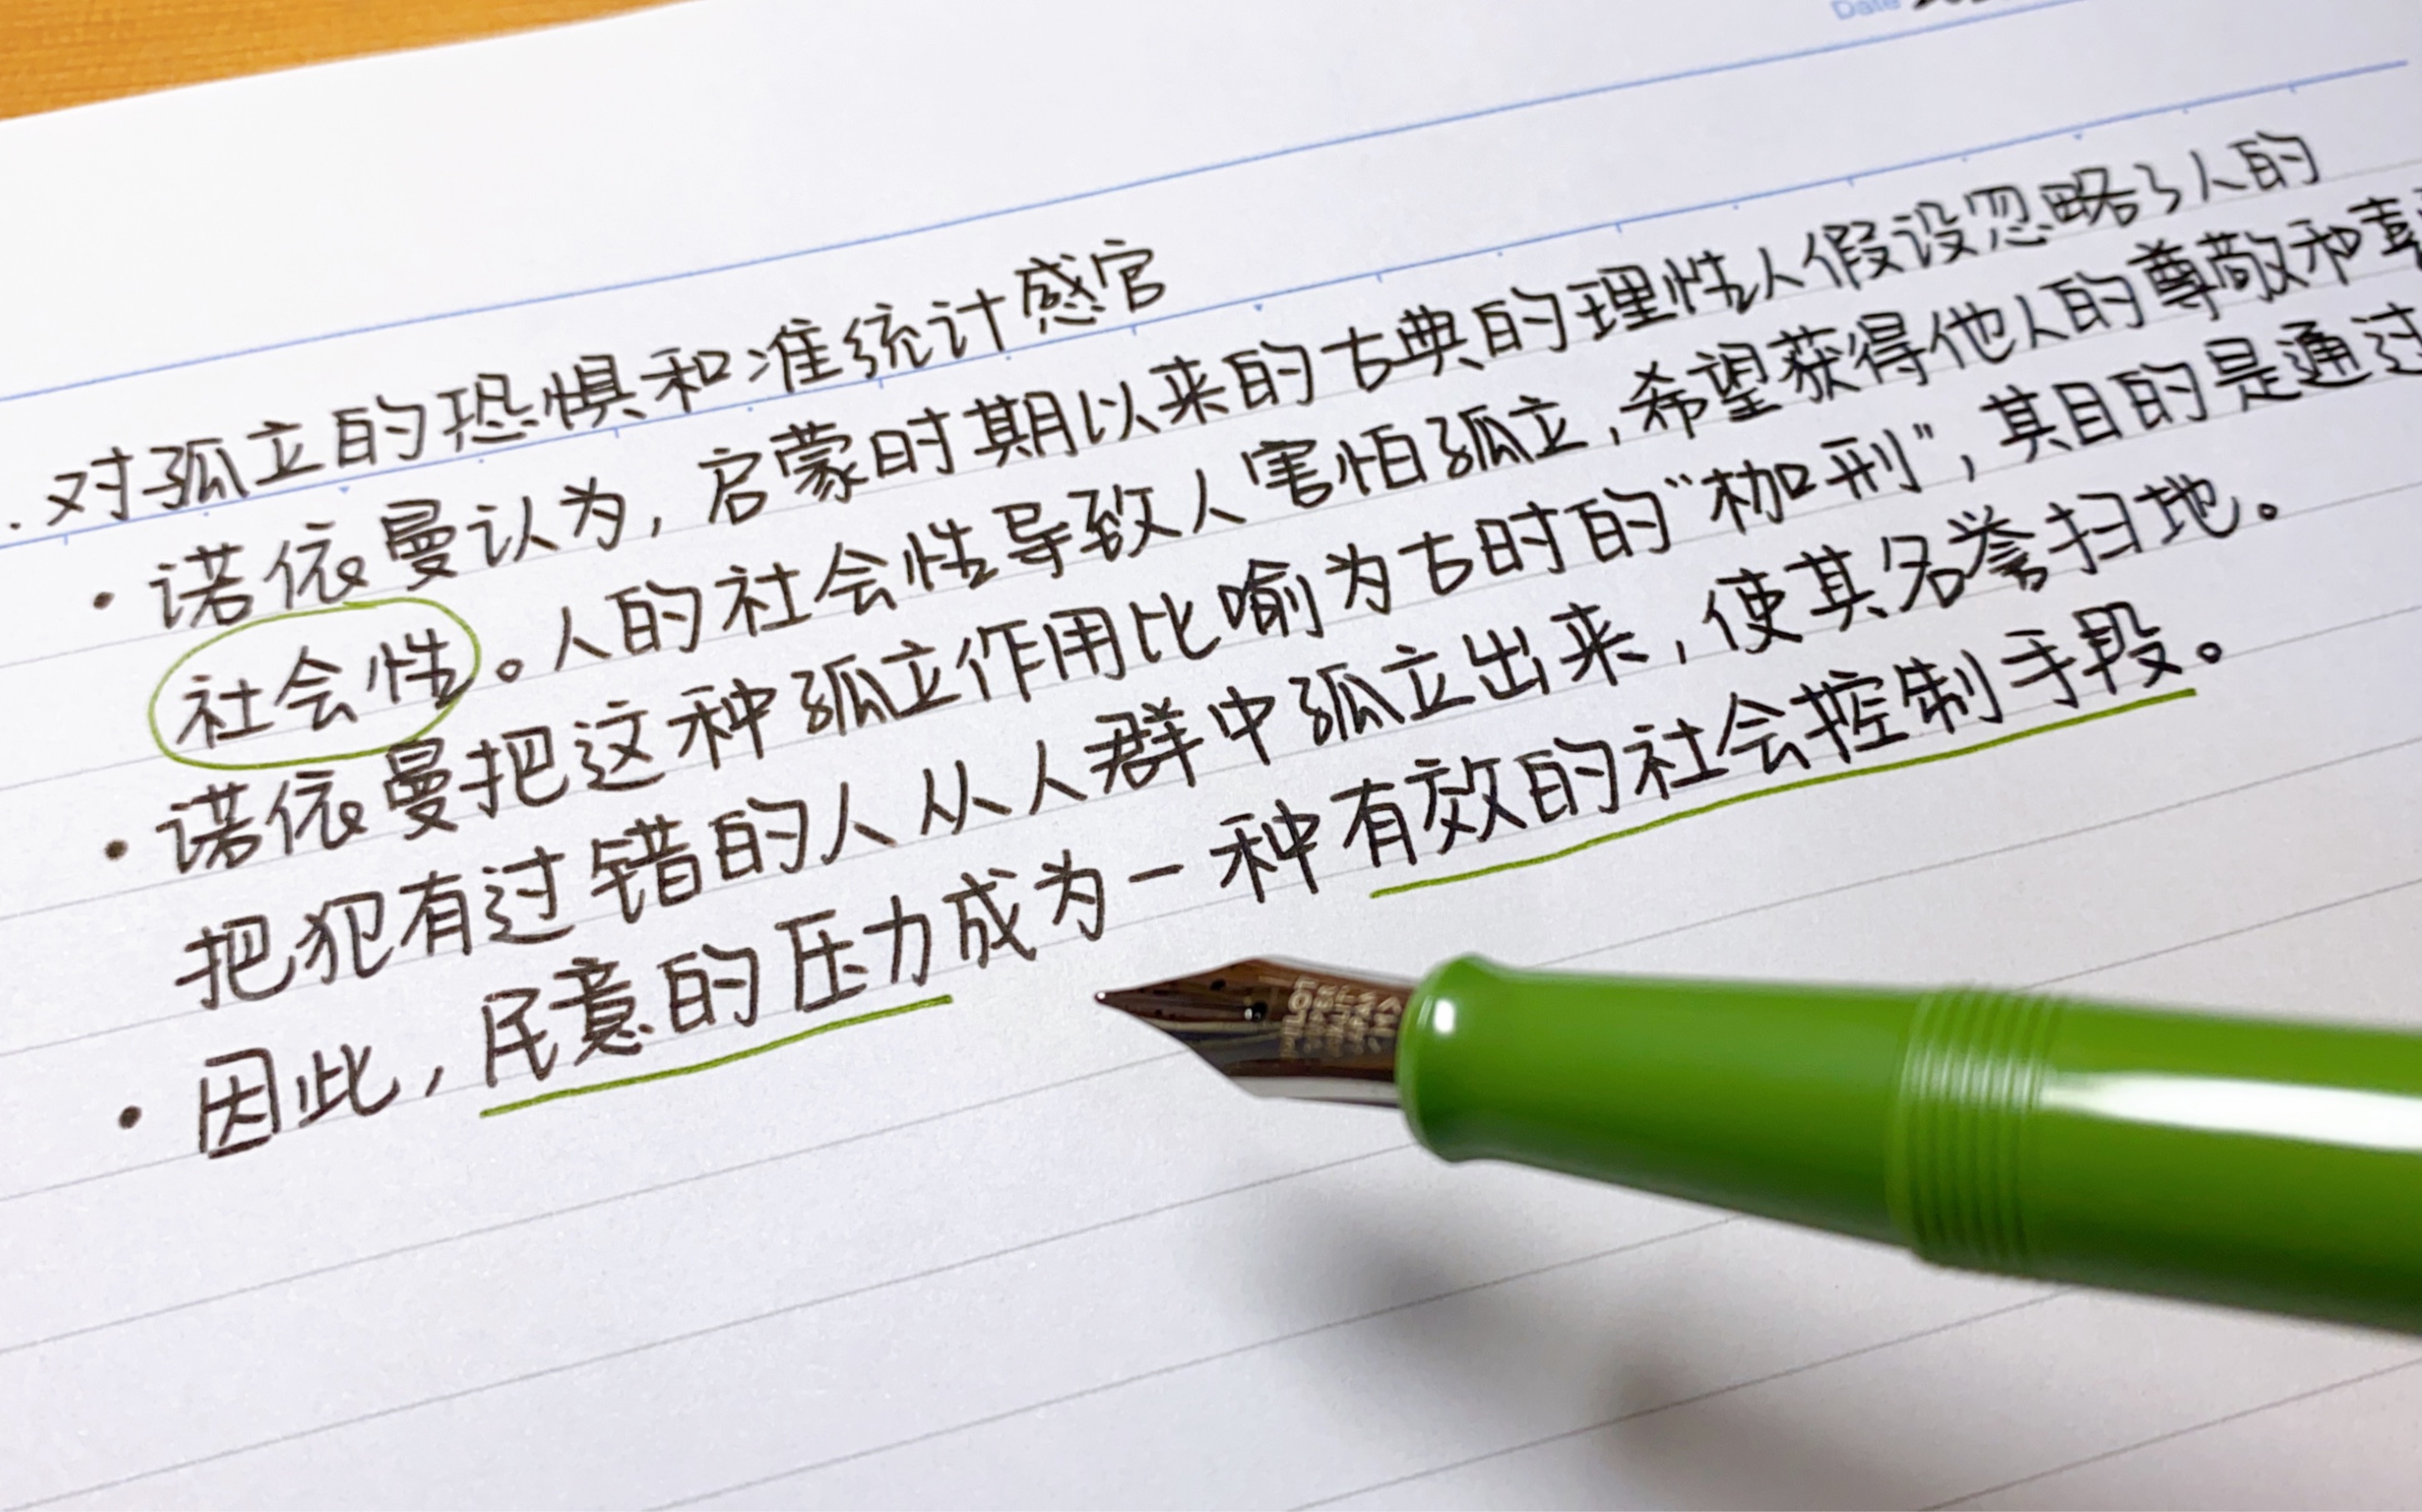 Date
. 对孤立的恐惧和准统计感官
· 诺依曼认为, 启蒙时期以来的古典的理性人假设忽略了人的
社会性。人的社会性导致人害怕孤立, 希望获得他人的尊敬和喜
· 诺依曼把这种孤立作用比喻为古时的“枷刑”, 其目的是通过
把犯有过错的人从人群中孤立出来, 使其名誉扫地。
· 因此, 民意的压力成为一种有效的社会控制手段。
PILOT
SUPER
QUALITY
JAPAN